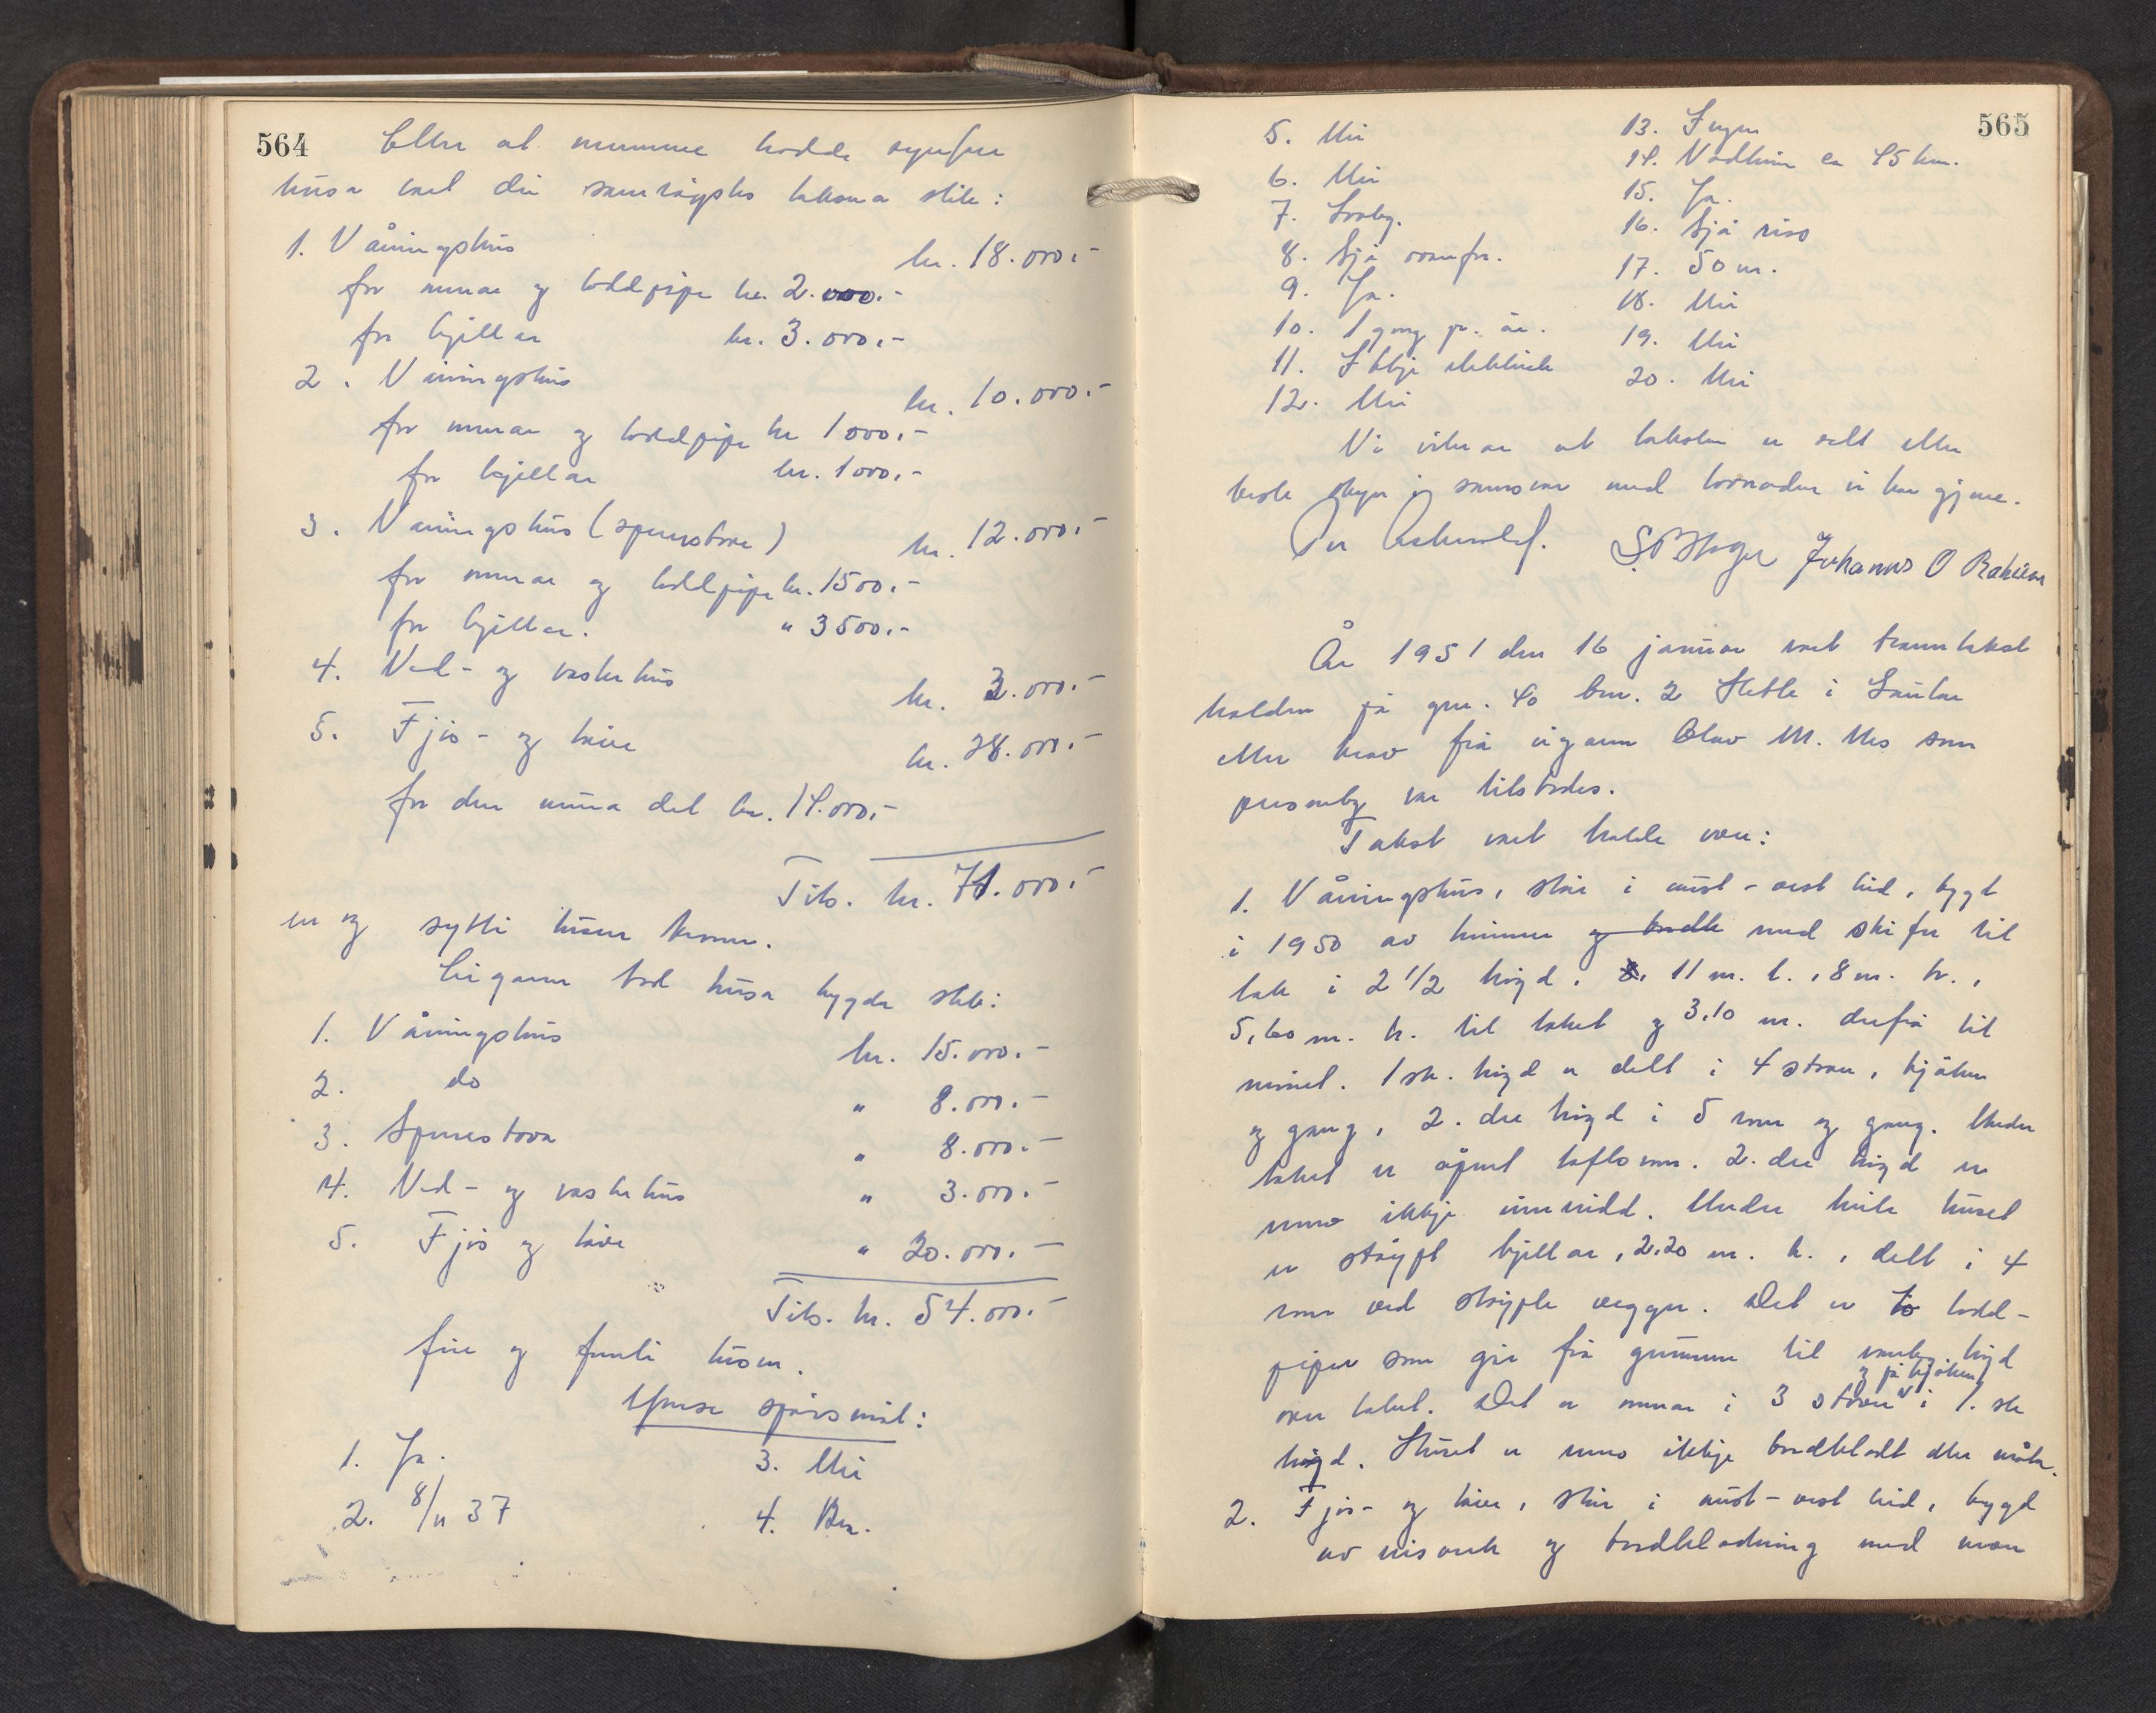 564
Etter at nemnne hadde synfare
husa vart dei samrøystes taksera slik:
1. Våningshus kr. 18.000.-
for murar og toddpipe kr. 2.000.-
for kjellar kr. 3.000.-
2. Våningshus kr. 10.000.-
for murar og toddpipe kr 1000.-
for kjellar kr. 1000.-
3. Våningshus (sperrstove) kr. 12.000.-
for murar og toddpipe kr. 1500.-
for kjellar. " 3500.-
4. Ved- og vaskehus kr. 3.000.-
5. Fjøs- og løe kr. 28.000.-
for den mura del kr. 14.000.-
Tils. kr. 71.000.-
ein og sytti tusen kroner.
Eigaren bad husa trygda slik:
1. Våningshus kr. 15.000.-
2. do " 8.000.-
3. Sperrestova " 8.000.-
4. Ved- og vaskehus " 3.000.-
5. Fjøs og løe " 20.000.-
Tils. kr. 54.000.-
fire og femti tusen.
Ymse spørsmål:
1. Ja. 3. Nei
2. 8/11 37 4. Bra.
565
5. Nei 13. Ingen
6. Nei 14. Vadheim ca 45 km.
7. Lovleg. 15. Ja.
8. Sjå ovanfor. 16. Sjå riss
9. Ja. 17. 50 m.
10. 1 gong pr. år. 18. Nei
11. Ikkje elektrisk 19. Nei
12. Nei 20. Nei
Vi vitnar at taksten er sett etter
beste skyn i samsvar med lovnaden vi har gjeve.
Per Johannes O
År 1951 den 16 januar vart branntakst
halden på gnr. 40 bnr. 2 Slette i Gaular
etter krav frå eigaren Olav M. Nes som
personleg var tilstades.
Takst vart halde over:
1. Våningshus, står i aust-vest leid, bygt
i 1950 av timmer og bordkle med skifer til
tak i 2 1/2 høgd. 11 m. l., 8 m. br.,
5,60 m. h. til taket og 3,10 m. derfrå til
mønet. 1 ste. høgd er delt i 4 stover, kjøken
og gang, 2. dre høgd i 5 rom og gang. Under
taket er åpent loftsrom. 2. dre høgd er
enno ikkje innreidd. Under heile huset
er støypt kjellar, 2,20 m. h., delt i 4
rom ved støypte vegger. Det er to todd-
piper som går frå grunnen til vanleg høgd
over taket. Det er murar i 3 stover og på kjøken i 1. ste
høgd. Huset er enno ikkje bordkledt eller måla.
2. Fjøs- og løe, står i aust-vest leid, bygd
av reisverk og bordkledning med